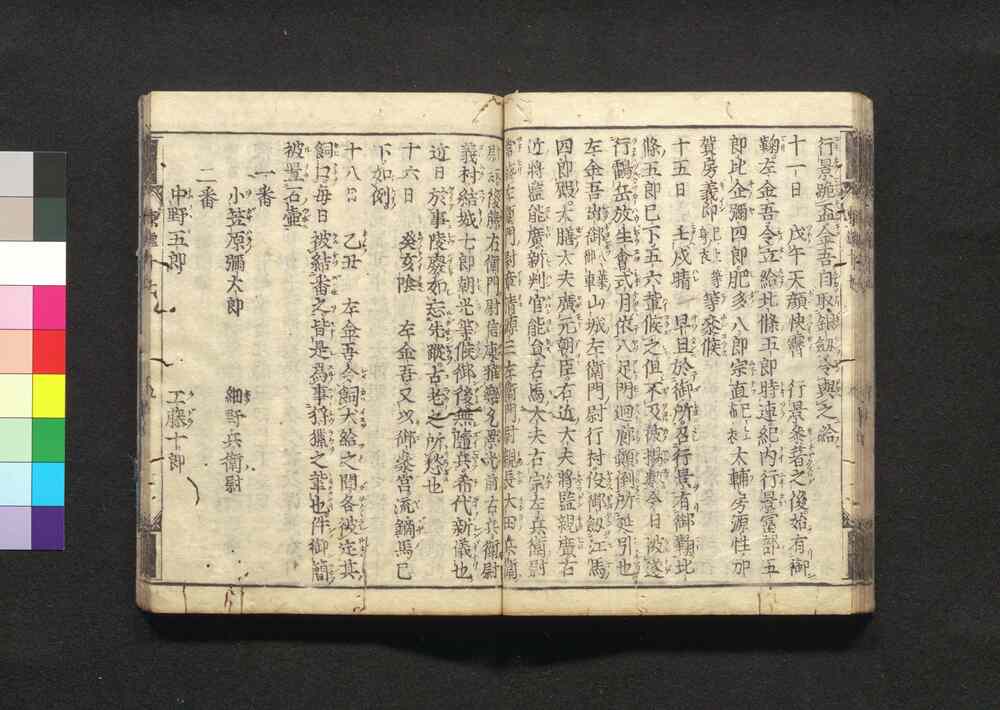 行景跪盃金吾自取銀劔令與之給
十一日　戊午天顔快霽　行景參著之後始有御
鞠左金吾令立給北條五郎時連紀内行景冨部五
郎比企彌四郎肥多八郎宗直　大輔房源性加
賀房義印　等參候
十五日　壬戌晴　早旦於御所召行景有御鞠北
條五郎已下五六輩候之但不及　今日被遂
行鶴岳放生會式月依八足門廻廊顛倒所延引也
左金吾出御御車山城左衛門尉行村役御劔江馬
四郎殿大膳大夫廣元朝臣右近大夫將監親廣右
近將監能廣新判官能員右馬大夫右宗左兵衛尉
常盛左衛門尉義清源三左衛門尉親長太田兵衛
尉　後藤左衛門尉信康　右兵衛尉
義村結城七郎朝光等候御後無隨兵希代新儀也
近日於事陵廢如忘先蹤古老之所愁也
十六日　癸亥陰　左金吾又以御參宮流鏑馬已
下如例
十八日　乙丑　左金吾令飼犬給之間各被定其
飼口毎日被結番之皆是爲事狩獵之輩也件御簡
被置石壷
一番
小笠原彌太郎　細野兵衛尉
二番
中野五郎　工藤十郎